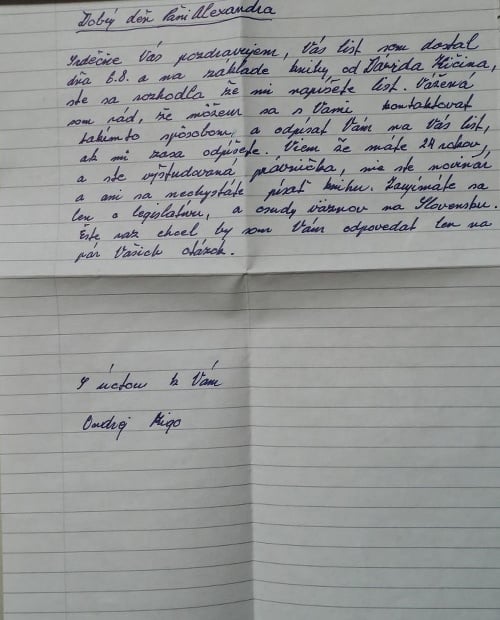 Dobrý deň Pani Alexandra
Srdečne Vás pozdravujem, Váš list som dostal
dňa 6.8. a na základe knihy od Davida
ste sa rozhodla že mi napíšete list. Vážená
som rád, že môžem sa s Vami kontaktovať
takímto spôsobom, a odpísať Vám na Váš list,
ak mi zasa odpíšete. Viem že máte 24 rokov,
a ste vyštudovaná právnička, nie ste novinár
a ani sa nechystáte písať knihu. Zaujímate sa
len o legislatívu, a osudy väzňov na Slovensku.
Ešte raz chcel by som Vám odpovedať len na
pár Vašich otázok.
S úctou k Vám
Ondrej Rigo